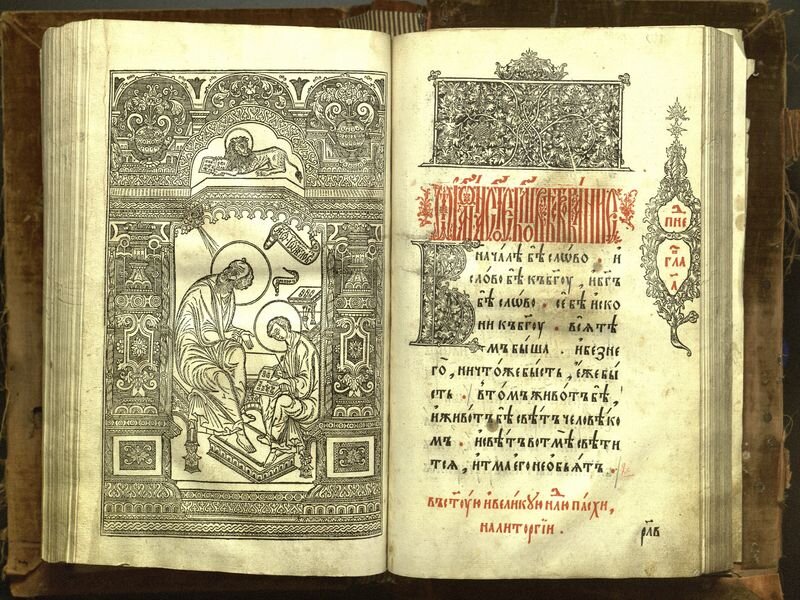 В началѣ бѣ слово . и
слово бѣ къ бг҃оу , и бг҃ъ
бѣ слово . се бѣ и҆ско
ни къ бг҃оу . всѧ тѣ
мъ быша . и без не
го̀ , ничтоже бысть , є҆же бы
сть . в то́мъ живо́тъ бѣ ,
и҆ живо́тъ бѣ свѣ́тъ человѣ́ко
мъ . и свѣ́тъ во тмѣ̀ свѣ́ти
тсѧ , и҆ тма̀ є҆го̀ не ѡб̾ѧ́тъ .
въ ст҃ꙋю и҆ вели́кꙋю нлⷣю па́схи ,
на литоргі́и .
рл҃в